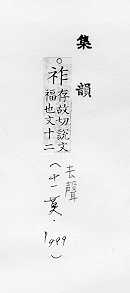 集韻
○祚存故切說文
福也文十二
去聲
(十一莫・1499)